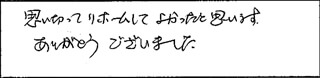 思いきってリホームしてよかったと思います。
ありがとうございました